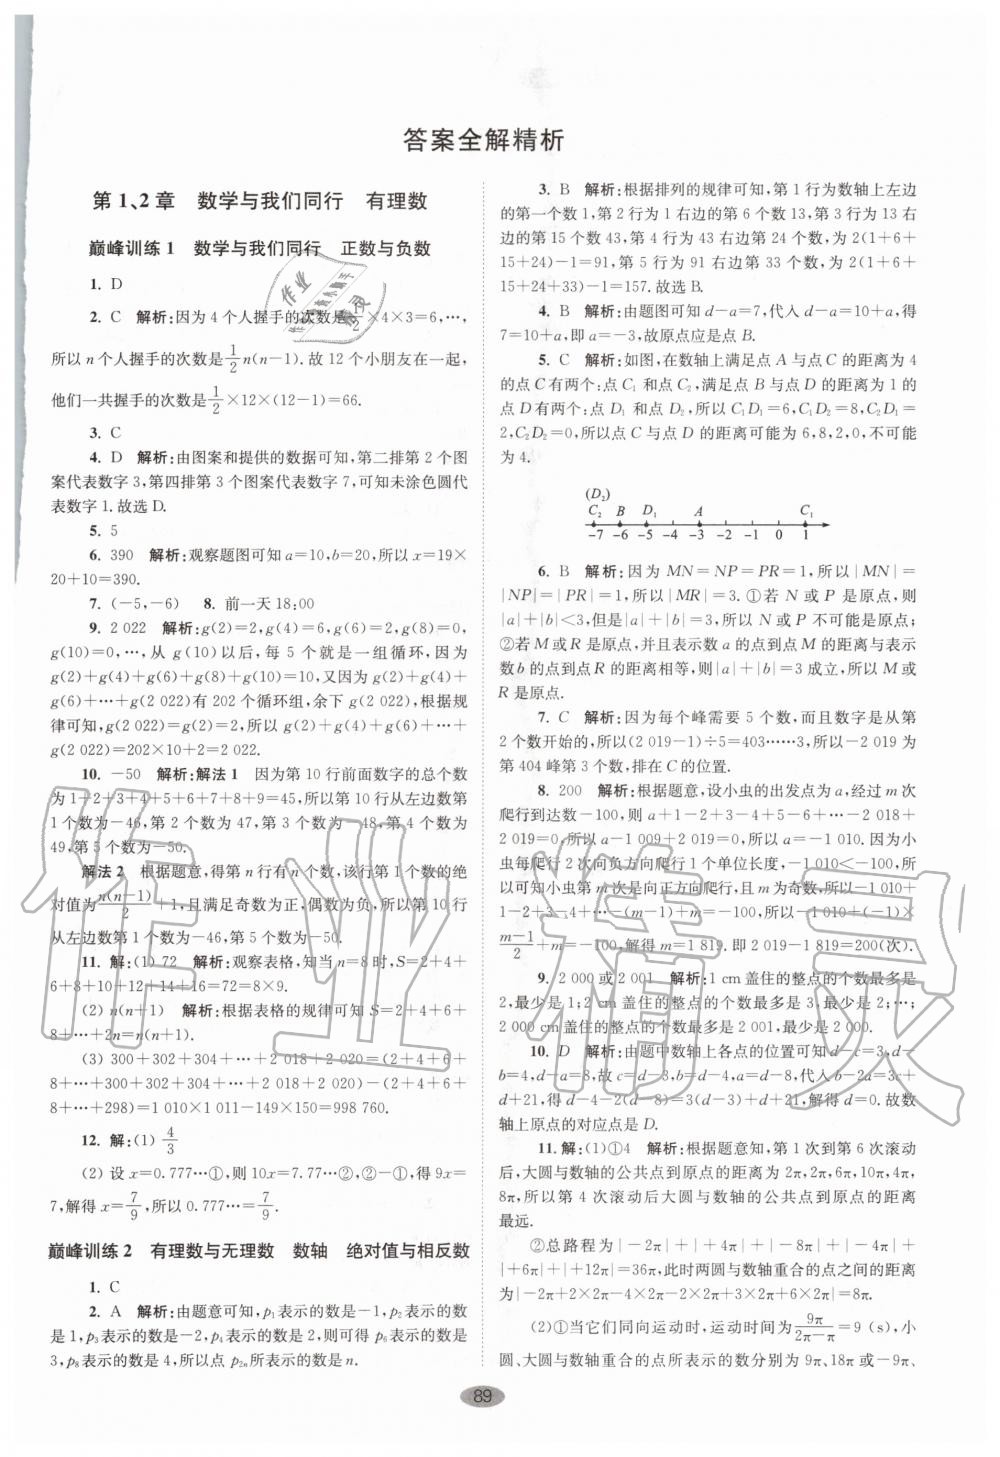 答案全解精析
第1、2章 数学与我们同行 有理数
巅峰训练1 数学与我们同行 正数与负数
1. D
2. C 解析:因为4个人握手的次数是1/2×4×3=6,…,
所以n个人握手的次数是1/2n(n-1).故12个小朋友在一起,
他们一共握手的次数是1/2×12×(12-1)=66.
3. C
4. D 解析:由图案和提供的数据可知,第二排第2个图
案代表数字3,第四排第3个图案代表数字7,可知未涂色圆代
表数字1.故选D.
5. 5
6. 390 解析:观察题图可知a=10,b=20,所以x=19×
20+10=390.
7. (-5,-6) 8. 前一天18:00
9. 2 022 解析:g(2)=2,g(4)=6,g(6)=2,g(8)=0,
g(10)=0,…,从g(10)以后,每5个就是一组循环,因为
g(2)+g(4)+g(6)+g(8)+g(10)=10,又因为g(2)+g(4)+
g(6)+…+g(2 022)有202个循环组,余下g(2 022),根据规
律可知,g(2 022)=g(2)=2,所以g(2)+g(4)+g(6)+…+
g(2 022)=202×10+2=2 022.
10. -50 解析:解法1 因为第10行前面数字的总个数
为1+2+3+4+5+6+7+8+9=45,所以第10行从左边数第
1个数为-46,第2个数为47,第3个数为-48,第4个数为
49,第5个数为-50.
解法2 根据题意,得第n行有n个数,该行第1个数的绝
对值为n(n-1)/2+1,且满足奇数为正,偶数为负,所以第10行
从左边数第1个数为-46,第5个数为-50.
11. 解:(1) 72 解析:观察表格,知当n=8时,S=2+4+
6+8+10+12+14+16=72=8×9.
(2) n(n+1) 解析:根据表格的规律可知S=2+4+6+
8+…+2n=n(n+1).
(3) 300+302+304+…+2 018+2 020=(2+4+6+
8+…+300+302+304+…+2 018+2 020)-(2+4+6+
8+…+298)=1 010×1 011-149×150=998 760.
12. 解:(1) 4/3
(2) 设x=0.777…①,则10x=7.77…②,②-①,得9x=
7,解得x=7/9,所以0.777…=7/9.
巅峰训练2 有理数与无理数 数轴 绝对值与相反数
1. C
2. A 解析:由题意可知,p₁表示的数是-1,p₂表示的数
是1,p₃表示的数是-2,p₄表示的数是2,则可得p₆表示的数是
3,p₈表示的数是4,所以点p₂ₙ所表示的数是n.
3. B 解析:根据排列的规律可知,第1行为数轴上左边
的第一个数1,第2行为1右边的第6个数13,第3行为13右
边的第15个数43,第4行为43右边第24个数,为2(1+6+
15+24)-1=91,第5行为91右边的第33个数,为2(1+6+
15+24+33)-1=157.故选B.
4. B 解析:由题图可知d-a=7,代入d-2a=10,得
7=10+a,即a=-3,故原点应是点B.
5. C 解析:如图,在数轴上满足点A与点C的距离为4
的点C有两个:点C₁和点C₂,满足点B与点D的距离为1的
点D有两个:点D₁和点D₂,所以C₁D₁=6,C₁D₂=8,C₂D₁=
2,C₂D₂=0,所以点C与点D的距离可能为6,8,2,0,不可能
为4.
(D₂)
C₂ B D₁ A C₁
-7 -6 -5 -4 -3 -2 -1 0 1
6. B 解析:因为MN=NP=PR=1,所以|MN|=
|NP|=|PR|=1,所以|MR|=3.①若N或P是原点,则
|a|+|b|<3,但是|a|+|b|=3,所以N或P不可能是原点;
②若M或R是原点,并且表示数a的点到点M的距离与表示
数b的点到点R的距离相等,则|a|+|b|=3成立,所以M或
R是原点.
7. C 解析:因为每个峰需要5个数,而且数字是从第
2个数开始的,所以(2 019-1)÷5=403……3,所以-2 019为
第404峰第3个数,排在C的位置.
8. 200 解析:根据题意,设小虫的出发点为a,经过m次
爬行到达数-100,则a+1-2+3-4+5-6+…-2 018+
2 019=0,所以a-1 009+2 019=0,所以a=-1 010.因为小
虫每爬行2次向负方向爬行1个单位长度,-1 010<-100,所
以可知小虫第m次是向正方向爬行,且m为奇数,所以-1 010+
1-2+3-4+…-(m-1)+m=-100,所以-1 010+(-1)×
(m-1)/2+m=-100,解得m=1 819.即2 019-1 819=200(次).
9. 2 000或2 001 解析:1 cm盖住的整点的个数最多是
2,最少是1;2 cm盖住的整点的个数最多是3,最少是2;…;
2 000 cm盖住的整点的个数最多是2 001,最少是2 000.
10. D 解析:由题中数轴上各点的位置可知d-c=3,d-
b=4,d-a=8,故c=d-3,b=d-4,a=d-8,代入b-2a=
3c+d+21,得d-4-2(d-8)=3(d-3)+d+21,解得d=0.故数
轴上原点的对应点是D.
11. 解:(1)①4 解析:根据题意知,第1次到第6次滚动
后,大圆与数轴的公共点到原点的距离为2π,2π,6π,10π,4π,
8π,所以第4次滚动后大圆与数轴的公共点到原点的距离
最远.
②总路程为|-2π|+|+4π|+|-8π|+|-4π|+
|+6π|+|+12π|=36π,此时两圆与数轴重合的点之间的距离
为|-2π+2×2π-4×2π-2×2π+3×2π+6×2π|=8π.
(2)①当它们同向运动时,运动时间为9π/(2π-π)=9 (s),小
圆、大圆与数轴重合的点所表示的数分别为9π,18π或-9π、
89